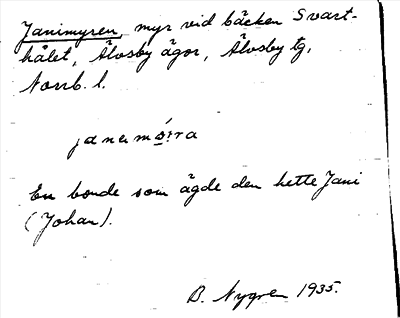 Janimyren, myr vid bäcken Svart-
hålet, Älvsby ägor, Älvsby tg,
Norrb. l.
En bonde som ägde den hette Jani
(Johan).
B. Nygren 1935.